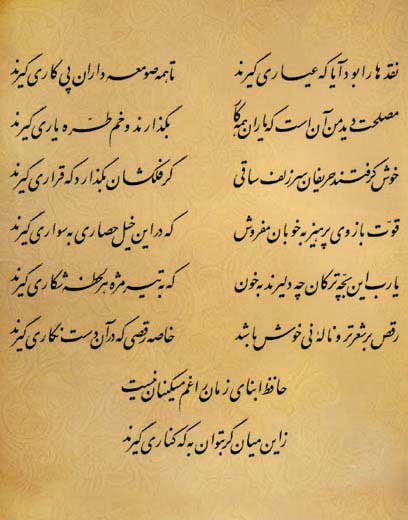 نقدها را بود آیا که عیاری گیرند تا همه صومعه داران پی کاری گیرند
مصلحت دید من آن است که یاران همه کار بگذارند و خم طرّه یاری گیرند
خوش گرفتند حریفان سر زلف ساقی گر فلکشان بگذارد که قراری گیرند
قوّت بازوی پرهیز به خوبان مفروش که در این خیل حصاری به سواری گیرند
یارب این بچّه ترکان چه دلیرند به خون که به تیر مژه هر لحظه شکاری گیرند
رقص بر شعر تر و نالهٔ نی خوش باشد خاصه رقصی که در آن دست نگاری گیرند
حافظ ابنای زمان را غم مسکینان نیست
زاین میان گر بتوان به که کناری گیرند